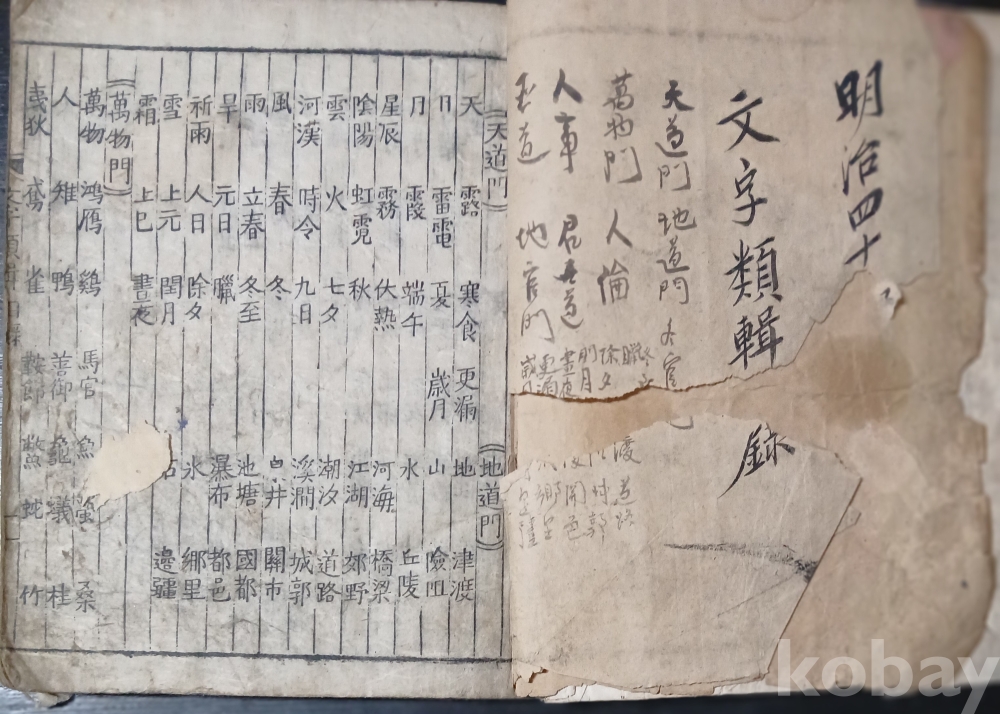 明治四十
文字類輯 錄
天道門 地道門
萬物門 人倫
人事 君道
地官門
臘
閏月 除夕
晝夜
更漏
渡 道路
城郭
關
鄉里
疆
天道門 地道門
天 露 寒食 更漏 地 津渡
日 雷電 夏 歲月 山 險阻
月 霞 端午 水 丘陵
星辰 霧 伏熱 河海 橋梁
陰陽 虹霓 秋 江湖 郊野
雲 火 七夕 潮汐 道路
河漢 時令 九日 溪澗 城郭
風 春 冬 井 關市
雨 立春 冬至 池塘 國都
旱 元日 臘 瀑布 都邑
祈雨 人日 除夕 氷 鄉里
雪 上元 閏月 邊疆
霜 上巳 晝夜
萬物門
萬物 鴻鴈 鷄 馬官 魚 桑
人 雉 鴨 善御 龜 蟻 桂
夷狄 雀 蛇 竹
kobay